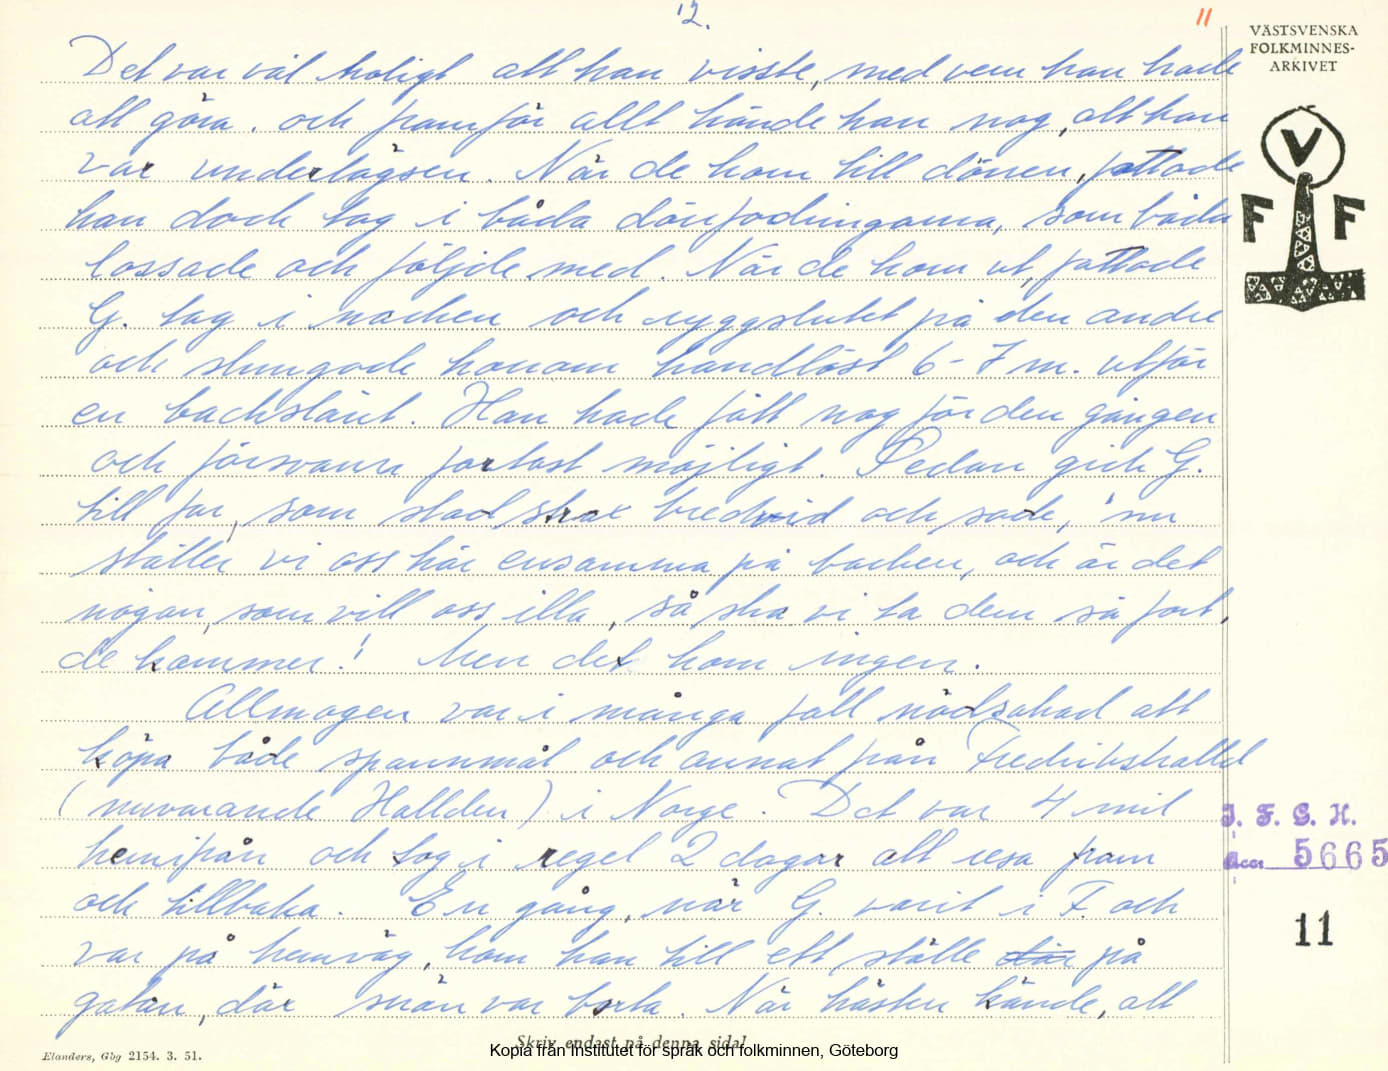 12.
11
VÄSTSVENSKA
FOLKMINNES-
ARKIVET
V
F F
Det var väl troligt att han visste, med vem han hade
att göra. och framför allt kände han nog, att han
var underlägsen. När de kom till dörren, fattade
han dock tag i båda dörrfodringarna, som båda
lossade och följde med. När de kom ut, fattade
G. tag i nacken och ryggslutet på den andre
och slungade honom handlöst 6-7 m. utför
en backslänt. Han hade fått nog för den gången
och försvann fortast möjligt. Sedan gick G.
till far, som stod strax bredvid och sade, "nu
ställer vi oss här ensamma på backen, och är det
någon, som vill oss illa, så ska vi ta dem så fort,
de kommer!" Men det kom ingen.
Allmogen var i många fall nödsakad att
köpa både spannmål och annat från Fredrikshalld
(nuvarande Hallden) i Norge. Det var 4 mil
hemifrån och tog i regel 2 dagar att resa fram
och tillbaka. En gång, när G. varit i F. och
var på hemväg, kom han till ett ställe där på
gatan, där snön var borta. När hästen kände, att
I. F. G. H.
Acc: 5665
11
Skriv endast på denna sida!
Elanders, Gbg 2154. 3. 51.
Kopia från Institutet för språk och folkminnen, Göteborg